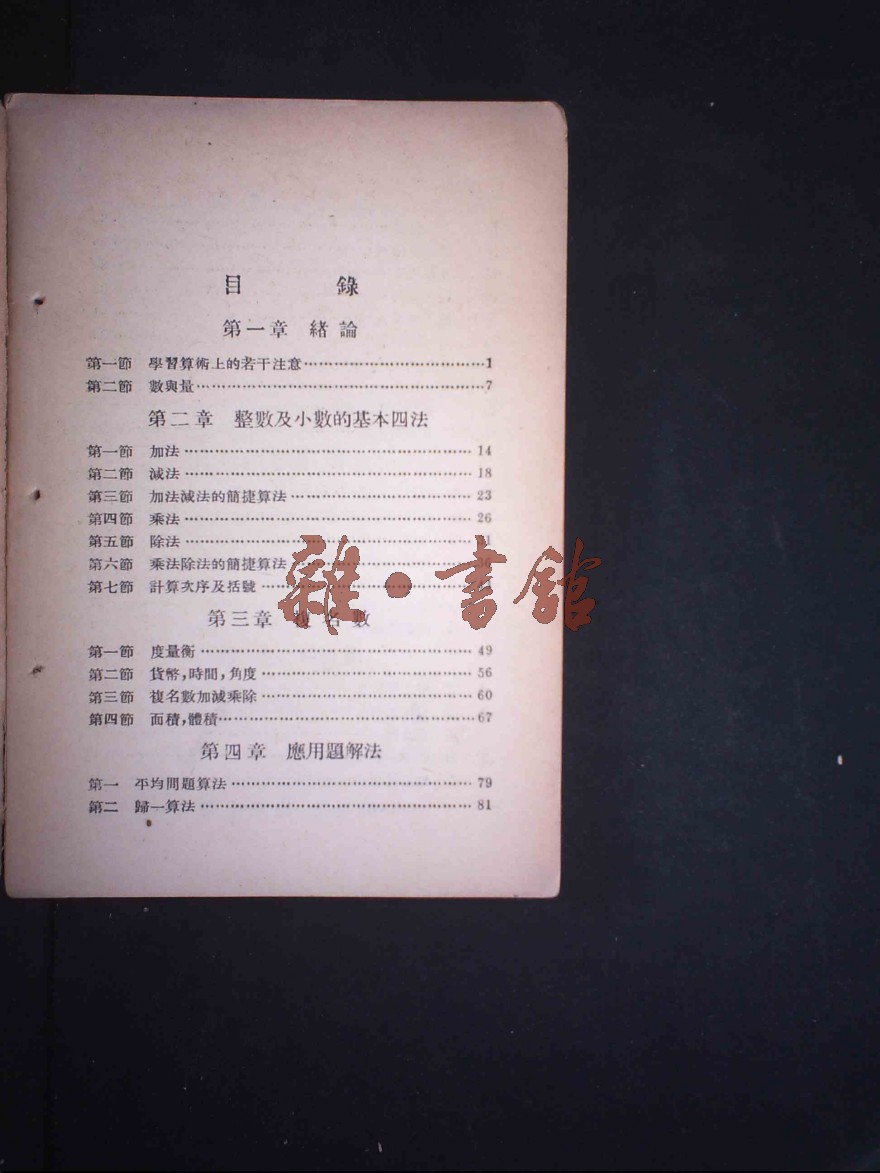 目錄
第一章 緒論
第一節 學習算術上的若干注意……………………………1
第二節 數與量……………………………………………7
第二章 整數及小數的基本四法
第一節 加法……………………………………………14
第二節 減法……………………………………………18
第三節 加法減法的簡捷算法……………………………23
第四節 乘法……………………………………………26
第五節 除法……………………………………………
第六節 乘法除法的簡捷算法……………………………
第七節 計算次序及括號…………………………………
第三章 複名數
第一節 度量衡……………………………………………49
第二節 貨幣,時間,角度…………………………………56
第三節 複名數加減乘除…………………………………60
第四節 面積,體積…………………………………………67
第四章 應用題解法
第一 平均問題算法………………………………………79
第二 歸一算法……………………………………………81
雜·書館